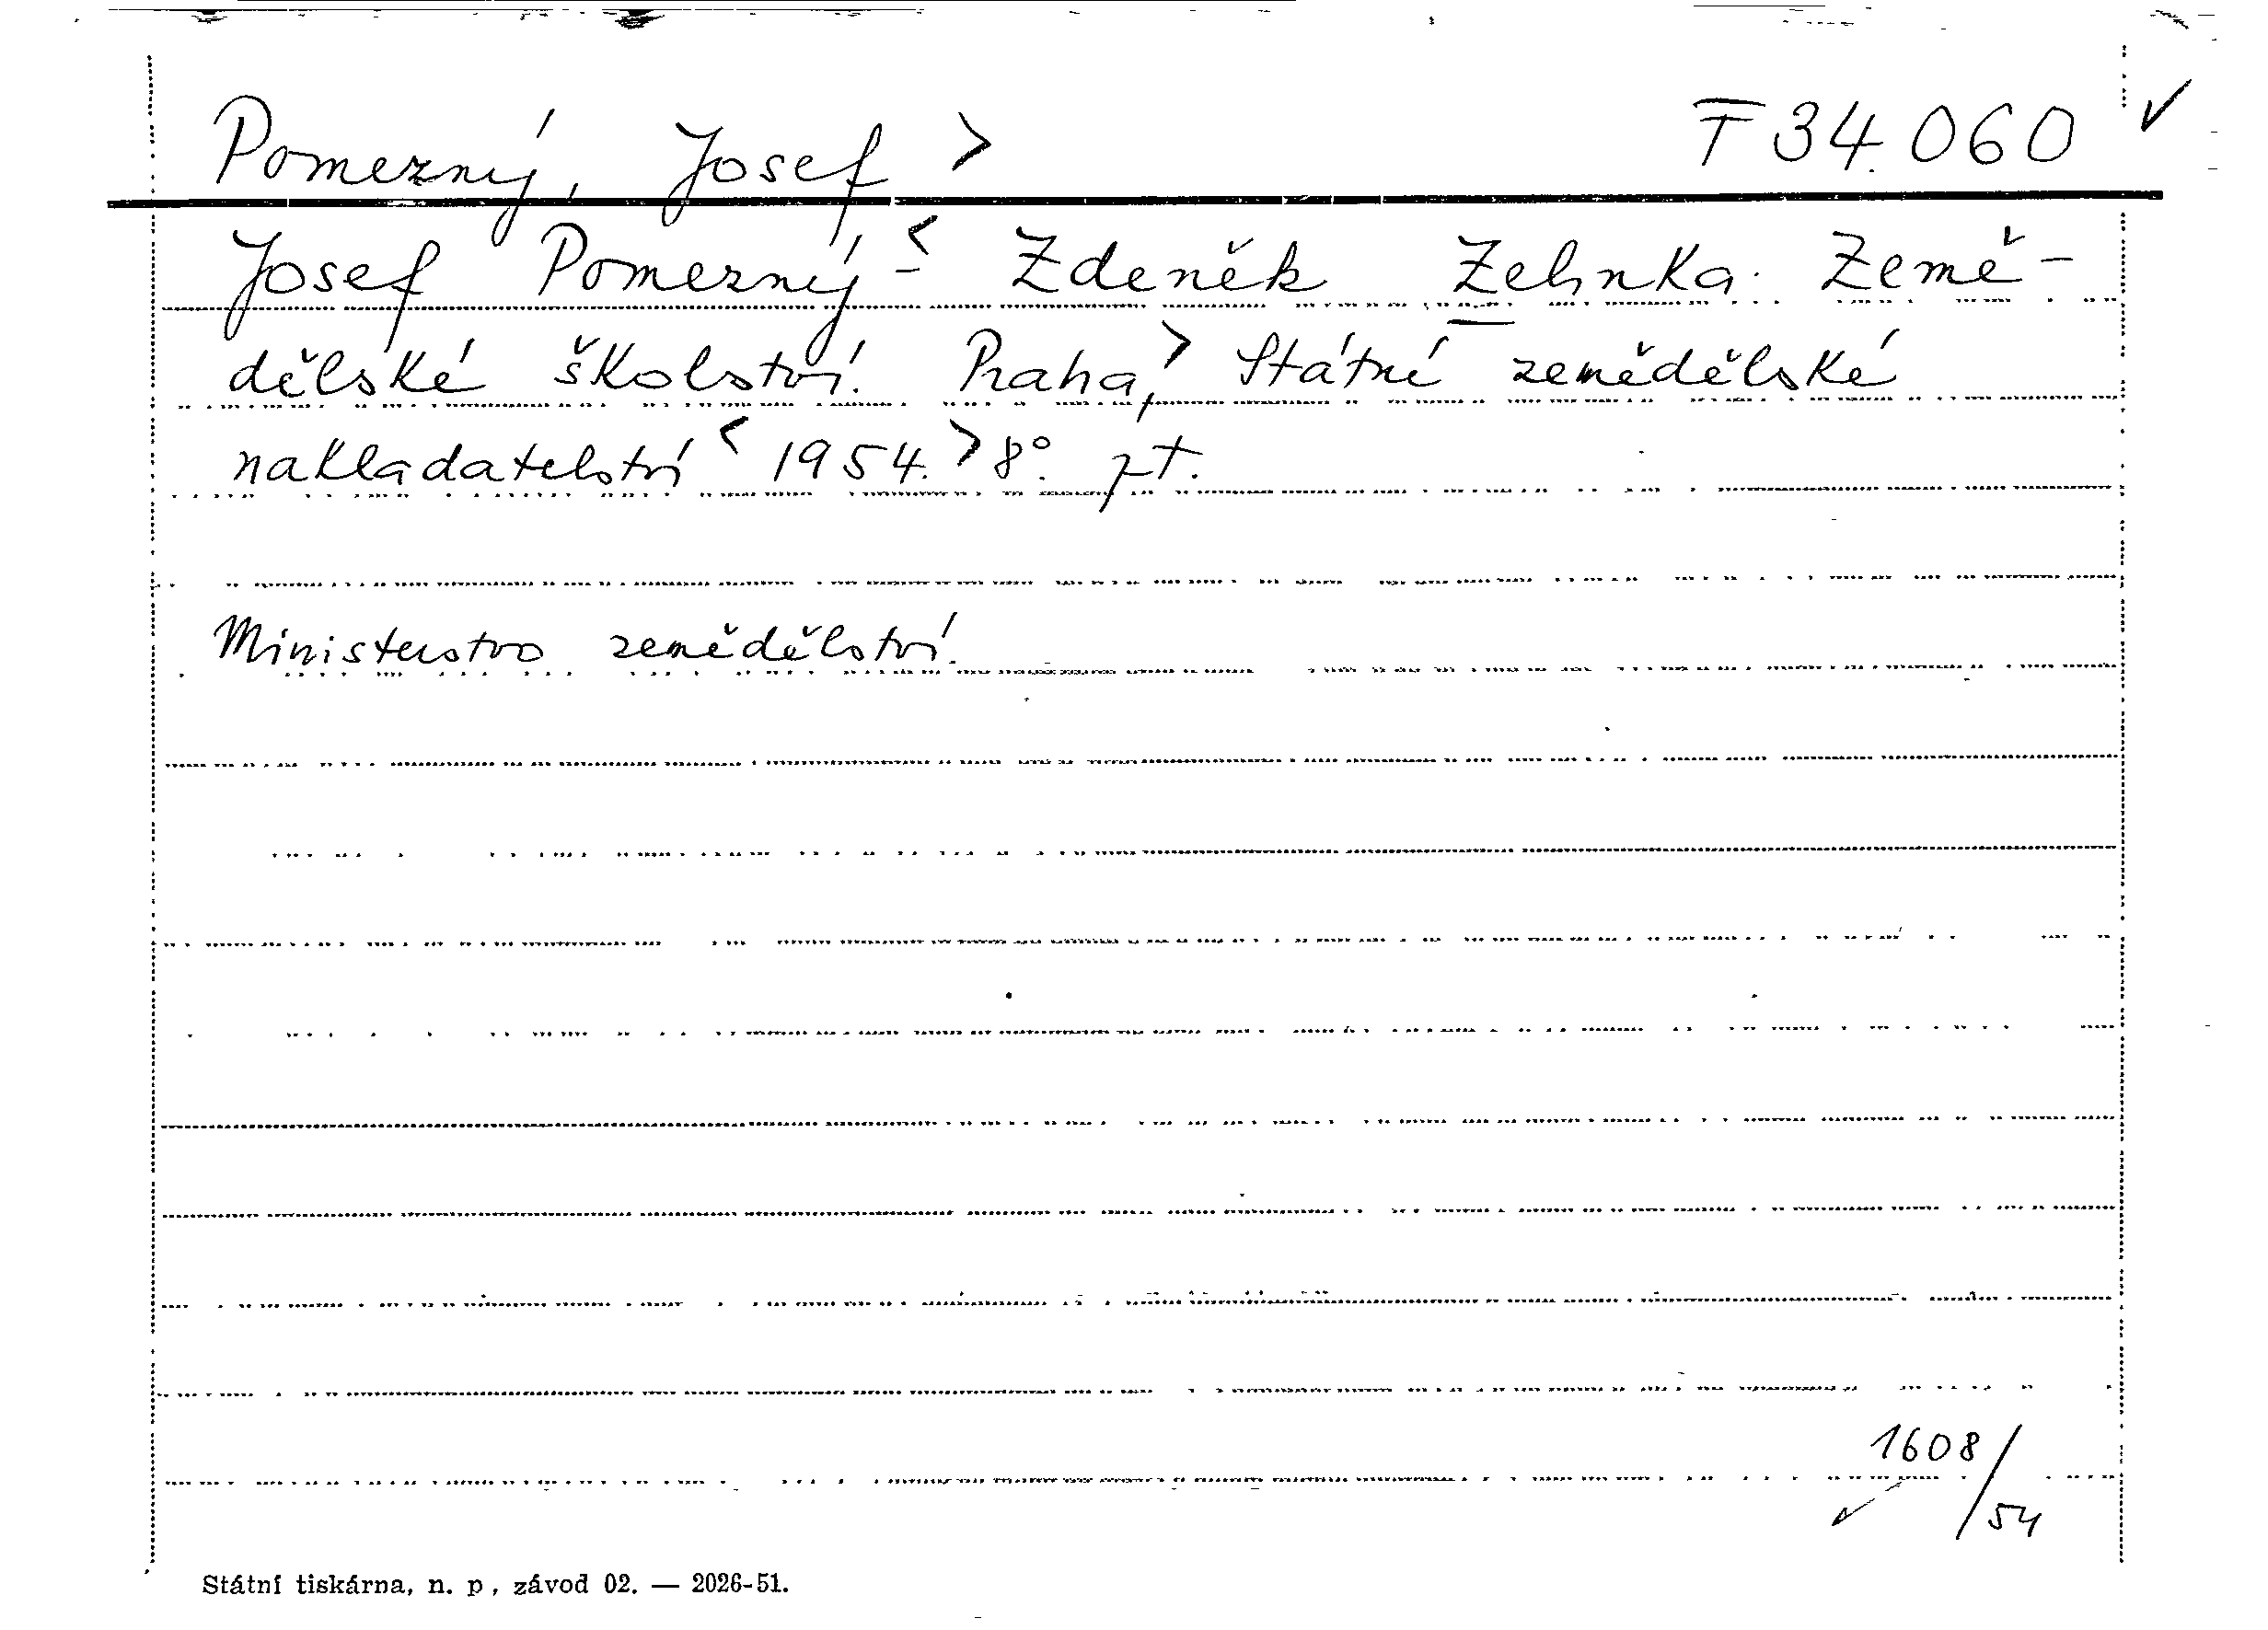 Pomezný, Josef > T 34.060 ✓
Josef Pomezný - < Zdeněk Zelinka. Země-
dělské školství. Praha, > Státní zemědělské
nakladatelství < 1954. > 8°. pt.
Ministerstvo zemědělství.
1608/54
Státní tiskárna, n. p., závod 02. — 2026-51.